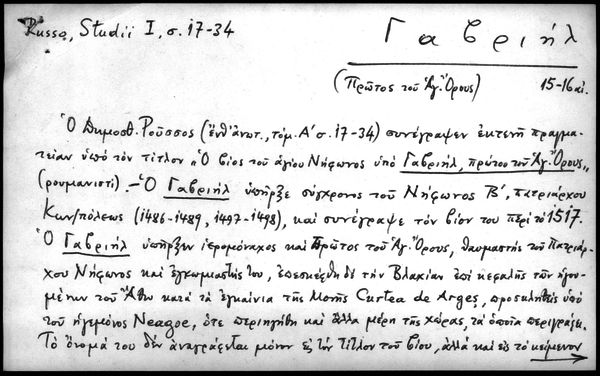 Russo, Studii I, σ. 17-34
Γαβριήλ
(Πρῶτος τοῦ Ἁγ. Ὄρους) 15-16 αἰ.
Ὁ Δημοσθ. Ροῦσσος (ἔνθ' ἀνωτ., τόμ. Α' σ. 17-34) συνέγραψεν ἐκτενῆ πραγμα-
τείαν ὑπὸ τὸν τίτλον „Ὁ βίος τοῦ ἁγίου Νήφωνος ὑπὸ Γαβριήλ, πρώτου τοῦ Ἁγ. Ὄρους„
(ρουμανιστί). – Ὁ Γαβριήλ ὑπῆρξε σύγχρονος τοῦ Νήφωνος Β', πατριάρχου
Κων/πόλεως (1486-1489, 1497-1498), καὶ συνέγραψε τὸν βίον του περὶ τὸ 1517.
Ὁ Γαβριήλ ὑπῆρξεν ἱερομόναχος καὶ Πρῶτος τοῦ Ἁγ. Ὄρους, θαυμαστής τοῦ Πατριάρ-
χου Νήφωνος καὶ ἐγκωμιαστής του, ἐπεσκέφθη δὲ τὴν Βλαχίαν ἐπὶ κεφαλῆς τῶν ἡγου-
μένων τοῦ Ἄθω κατὰ τὰ ἐγκαίνια τῆς Μονῆς Curtea de Argeș, προσκληθεὶς ὑπὸ
τοῦ ἡγεμόνος Neagoe, ὅτε περιηγήθη καὶ ἄλλα μέρη τῆς χώρας, τὰ ὁποῖα περιγράφει.
Τὸ ὄνομά του δὲν ἀναγράφεται μόνον εἰς τὸν τίτλον τοῦ βίου, ἀλλὰ καὶ εἰς τὸ κείμενον